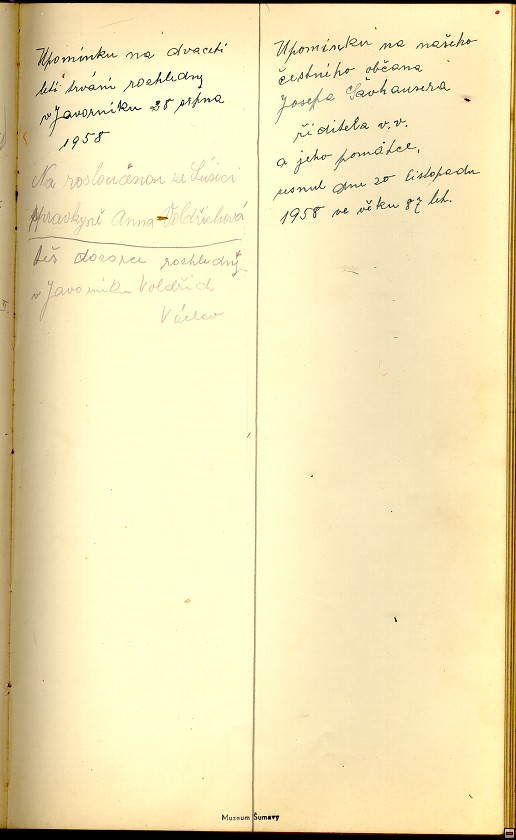 Upomínku na dvaceti
letí trvání rozhledny
v Javorníku 28 srpna
1958
Na rosloučenou ze Lusici
Anna Voldřichová
též dozorce rozhledny
v Javorníku Voldřich
Václav
Upomínku na našeho
čestného občana
Josefa
řiditela v.v.
a jeho památce,
sesnul dne 20 listopadu
1958 ve věku 87 let.
Muzeum Šumavy